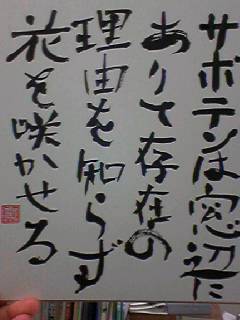 サボテンは窓辺に
ありて存在の
理由を知らず
花を咲かせる